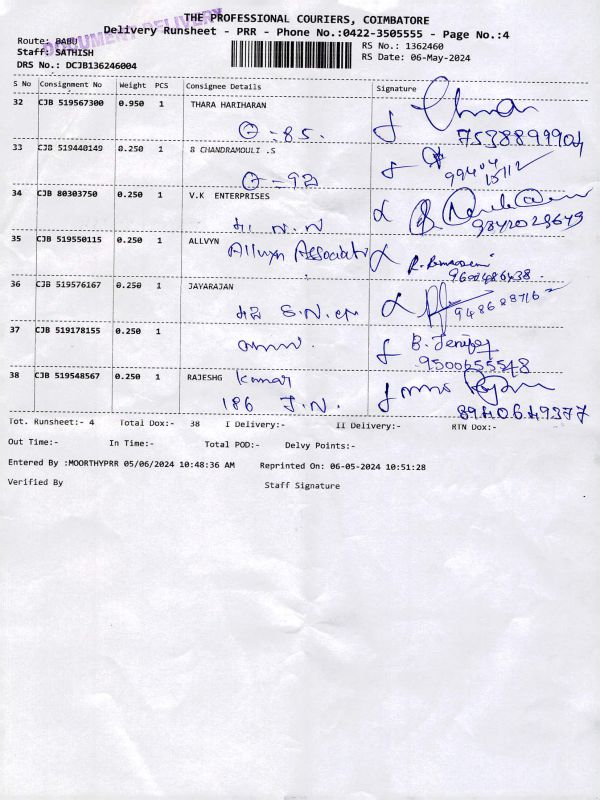 THE PROFESSIONAL COURIERS, COIMBATORE
Delivery Runsheet - PRR - Phone No.:0422-3505555 - Page No.:4
DOCUMENT DELIVERY
Route: BABU
RS No.: 1362460
Staff: SATHISH
RS Date: 06-May-2024
DRS No.: DCJB136246004
S No Consignment No Weight PCS Consignee Details Signature
32 CJB 519567300 0.950 1 THARA HARIHARAN
85. 7538899904
33 CJB 519440149 0.250 1 B CHANDRAMOULI .S
99404
15112
34 CJB 80303750 0.250 1 V.K ENTERPRISES
9842028649
35 CJB 519550115 0.250 1 ALLVYN
Allvyn Associats
9602486438.
36 CJB 519576167 0.250 1 JAYARAJAN
9486887162
37 CJB 519178155 0.250 1
B. Jenifer
9500655548
38 CJB 519548567 0.250 1 RAJESHG Kumar
186 J.N.
8940649377
Tot. Runsheet:- 4 Total Dox:- 38 I Delivery:- II Delivery:- RTN Dox:-
Out Time:- In Time:- Total POD:- Delvy Points:-
Entered By :MOORTHYPRR 05/06/2024 10:48:36 AM Reprinted On: 06-05-2024 10:51:28
Verified By Staff Signature